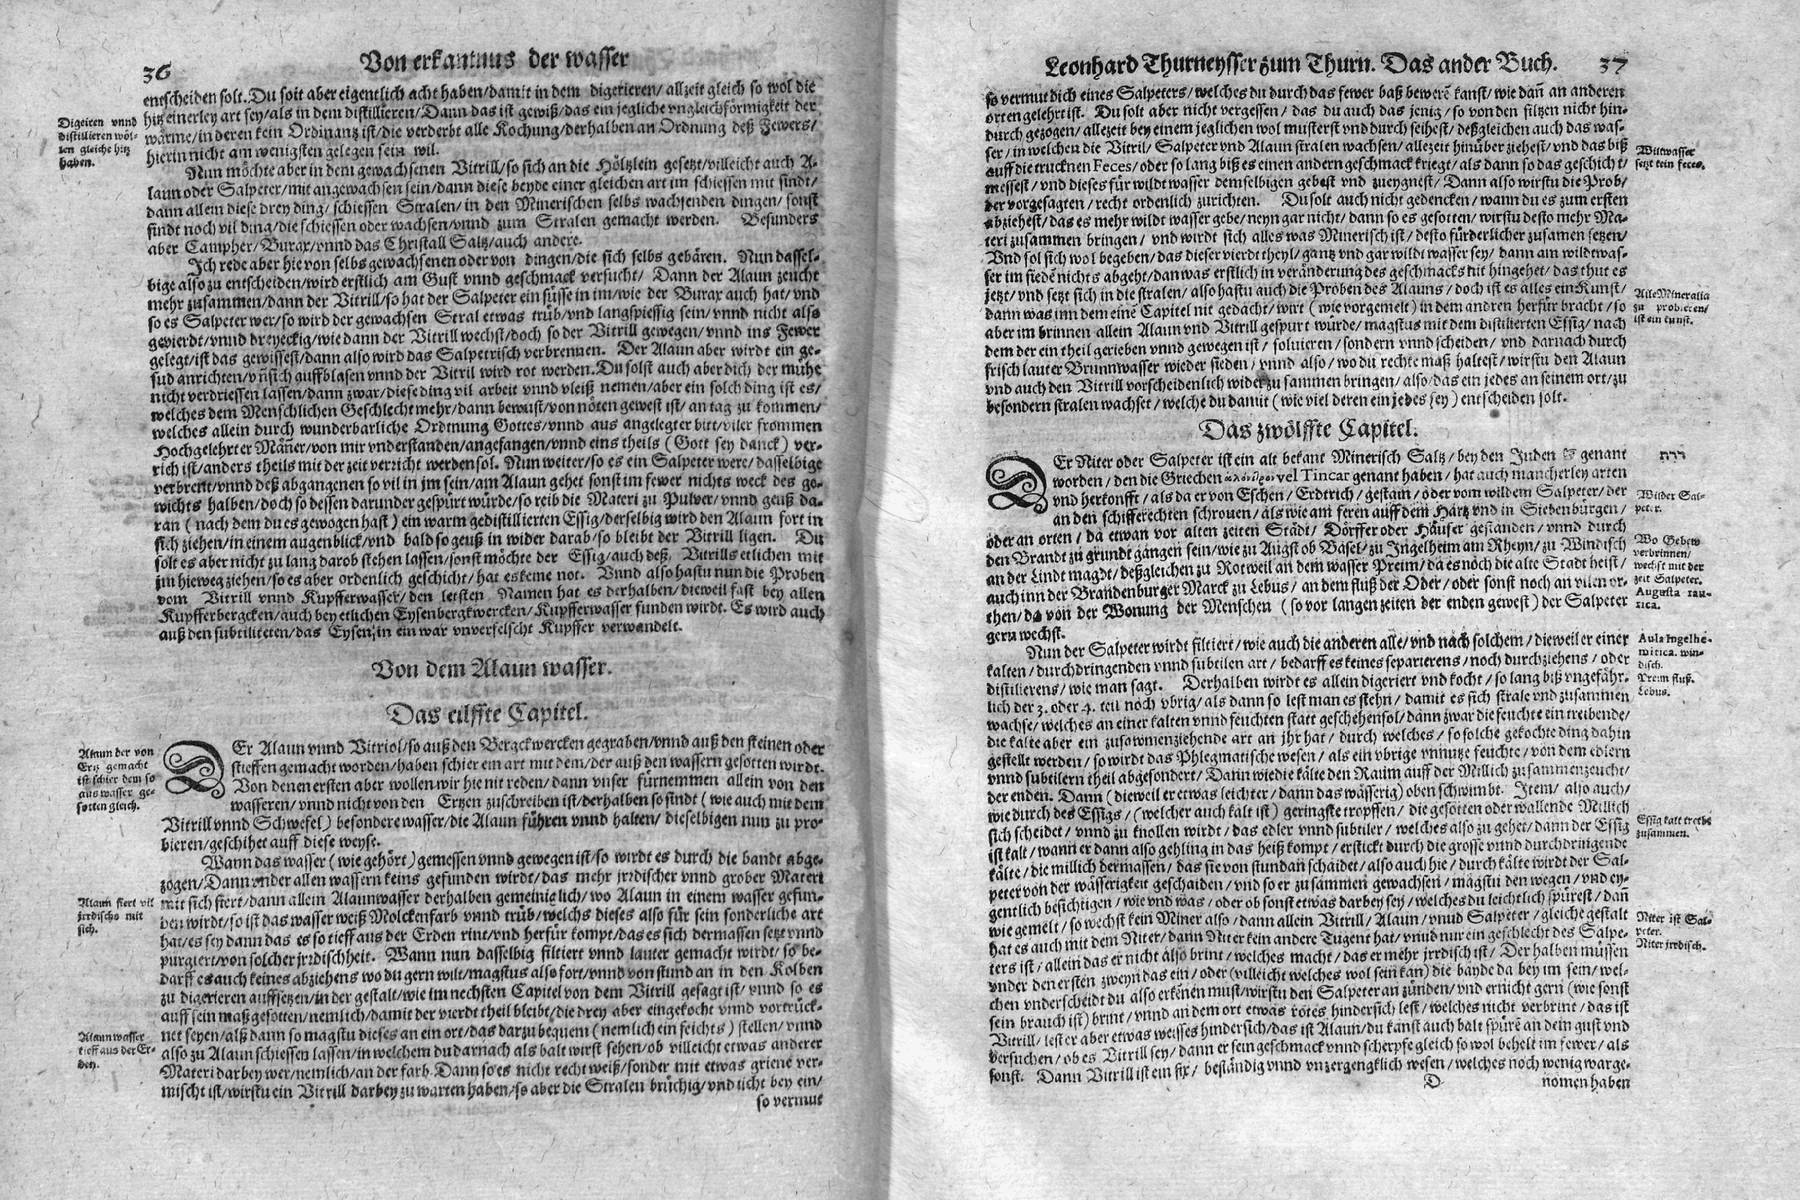 36
Von erkantnus der wasser
entscheiden solt. Du solt aber eigentlich acht haben/damit in dem digerieren/allzeit gleich so wol die
hitz einerley art sey/als in dem distillieren/Dann das ist gewiß/das ein jegliche vngleichförmigkeit der
wärme/in deren kein Ordinantz ist/die verderbt alle Kochung/derhalben an Ordnung deß Fewers/
hierin nicht am wenigsten gelegen sein wil.
Digeiren vnnd
distillieren wöl-
len gleiche hitz
haben.
Nun möchte aber in dem gewachsenen Vitrill/so sich an die Höltzlein gesetzt/villeicht auch A-
laun oder Salpeter/mit angewachsen sein/dann diese beyde einer gleichen art im schiessen mit sindt/
dann allein diese drey ding/schiessen Stralen/in den Minerischen selbs wachsenden dingen/sonst
sindt noch vil ding/die schiessen oder wachsen/vnnd zum Stralen gemacht werden. Besunders
aber Campher/Burax/vnnd das Christall Saltz/auch andere.
Ich rede aber hie von selbs gewachsenen oder von dingen/die sich selbs gebären. Nun dassel-
bige also zu entscheiden/wird erstlich am Gust vnnd geschmack versucht/ Dann der Alaun zeucht
mehr zusammen/dann der Vitrill/so hat der Salpeter ein süsse in im/wie der Burax auch hat/vnd
so es Salpeter wer/so wird der gewachsen Stral etwas trüb/vnd langspiessig sein/vnnd nicht also
gevierdt/vnnd dreyeckig/wie dann der Vitrill wechst/doch so der Vitrill gewegen/vnnd ins Fewer
gelegt/ist das gewissest/dann also wird das Salpetrisch verbrennen. Der Alaun aber wirdt ein ge-
sud anrichten/vn̄ sich auffblasen vnnd der Vitril wird rot werden. Du solst auch aber dich der mühe
nicht verdriessen lassen/dann zwar/diese ding vil arbeit vnnd vleiß nemen/aber ein solch ding ist es/
welches dem Menschlichen Geschlecht mehr/dann bewust/von nöten gewest ist/an tag zu kommen/
welches allein durch wunderbarliche Ordtnung Gottes/vnnd aus angelegter bitt/viler frommen
Hochgelehrter Mäñer/von mir vnderstanden/angefangen/vnnd eins theils (Gott sey danck) ver-
rich ist/anders theils mit der zeit verricht werden sol. Nun weiter/so es ein Salpeter were/dasselbige
verbrent/vnnd deß abgangenen so vil in jm sein/am Alaun gehet sonst im fewer nichts weck des ge-
wichts halben/doch so dessen darunder gespürt würde/so reib die Materi zu Pulver/vnnd geuß da-
ran (nach dem du es gewogen hast) ein warm gedistillierten Essig/derselbig wird den Alaun fort in
sich ziehen/in einem augenblick/vnd bald so geuß in wider darab/so bleibt der Vitrill ligen. Du
solt es aber nicht zu lang darob stehen lassen/sonst möchte der Essig/auch deß Vitrills etlichen mit
jm hieweg ziehen/so es aber ordenlich geschicht/hat es keine not. Vnnd also hastu nun die Proben
vom Vitrill vnnd Kupfferwasser/den letsten Namen hat es derhalben/dieweil fast bey allen
Kupfferbergcken/auch bey etlichen Eysenbergkwercken/Kupfferwasser funden wirdt. Es wird auch
auß den subtiliteten/das Eysen/in ein war vnverfelscht Kupffer verwandelt.
Von dem Alaun wasser.
Das eilffte Capitel.
DEr Alaun vnnd Vitriol/so auß den Bergckwercken gegraben/vnnd auß den steinen oder
stieffen gemacht worden/haben schier ein art mit dem/der auß den wassern gesotten wirdt.
Von denen ersten aber wollen wir hie nit reden/dann vnser fürnemmen allein von den
wasseren/vnnd nicht von den Ertzen zuschreiben ist/derhalben so sindt (wie auch mit dem
Vitrill vnnd Schwefel) besondere wasser/die Alaun führen vnnd halten/dieselbigen nun zu pro-
bieren/geschihet auff diese weyse.
Alaun der von
Ertz gemacht
ist schier dem so
aus wasser ge-
sotten gleich.
Wann das wasser (wie gehört) gemessen vnnd gewegen ist/so wirdt es durch die bandt abge-
zogen/Dann vnder allen wassern keins gefunden wirdt/das mehr jrdischer vnnd grober Materi
mit sich fiert/dann allein Alaunwasser derhalben gemeiniglich/wo Alaun in einem wasser gefun-
den wirdt/so ist das wasser weiß Molckenfarb vnnd trüb/welchs dieses also für sein sonderliche art
hat/es sey dann das es so tieff aus der Erden rint/vnd herfür kompt/das es sich dermassen setzt vnnd
purgiert/von solcher jrdischheit. Wann nun dasselbig filtiert vnnd lauter gemacht wirdt/so be-
darff es auch keines abziehens wo du gern wilt/magstus also fort/vnnd von stund an in den Kolben
zu digerieren auffsetzen/in der gestalt/wie im nechsten Capitel von dem Vitrill gesagt ist/vnnd so es
auff sein maß gesotten/nemlich/damit der vierdt theil bleibt/die drey aber eingekocht vnnd vortrück-
net seyen/alß dann so magstu dieses an ein ort/das darzu bequem (nemlich ein feichts) stellen/vnnd
also zu Alaun schiessen lassen/in welchem du darnach als balt wirst sehen/ob villeicht etwas anderer
Materi darbey wer/nemlich/an der farb. Dann so es nicht recht weiß/sonder mit etwas griene ver-
mischt ist/wirstu ein Vitrill darbey zu warten haben/so aber die Stralen brüchig/vnd licht bey ein/
so vermut
Alaun fiert vil
jrrdischs mit
sich.
Alaunwasser
tieff aus der Er-
den.
Leonhard Thurneysser zum Thurn. Das ander Buch. 37
so vermut dich eines Salpeters/welches du durch das fewer baß bewerē kanst/wie dañ an anderen
orten gelehrt ist. Du solt aber nicht vergessen/das du auch das jenig/so von den filtzen nicht hin-
durch gezogen/allezeit bey einem jeglichen wol musterst vnd durch seihest/deßgleichen auch das was-
ser/in welchen die Vitril/Salpeter vnd Alaun stralen wachsen/allezeit hinüber ziehest/vnd das biß
auff die trucknen Feces/oder so lang biß es einen andern geschmack kriegt/als dann so das geschicht/
messest/vnd dieses für wildt wasser demselbigen gebest vnd zueygnest/Dann also wirstu die Prob/
der vorgesagten/recht ordenlich zurichten. Du solt auch nicht gedencken/wann du es zum ersten
abziehest/das es mehr wildt wasser gebe/neyn gar nicht/dann so es gesotten/wirstu desto mehr Ma-
teri zusammen bringen/vnd wirdt sich alles was Minerisch ist/desto fürderlicher zusamen setzen/
Vnd sol sich wol begeben/das dieser vierdt theyl/gantz vnd gar wildt wasser sey/dann am wildtwas-
ser im siedē nichts abgeht/dan was erstlich in veränderung des geschmacks hit hingehet/das thut es
jetzt/vnd setzt sich in die stralen/also hastu auch die Proben des Alauns/doch ist es alles ein Kunst/
dann was inn dem einē Capitel nit gedacht/wirt (wie vorgemelt) in dem andren herfür bracht/so
aber im brinnen allein Alaun vnd Vitrill gespurt würde/magstus mit dem distilierten Essig/nach
dem der ein theil gerieben vnnd gewegen ist/soluieren/sondern vnnd scheiden/vnd darnach durch
frisch lauter Brunnwasser wieder sieden/vnnd also/wo du rechte maß haltest/wirstu den Alaun
vnd auch den Vitrill vorscheidenlich wider zusammen bringen/also/das ein jedes an seinem ort/zu
besondern stralen wachset/welche du damit (wie viel deren ein jedes sey) entscheiden solt.
Wiltwasser
setzt kein feces.
Alle Mineralia
zu probieren/
ist ein kunst.
Das zwölffte Capitel.
DEr Niter oder Salpeter ist ein alt bekant Minerisch Saltz/bey den Juden genant
worden/den die Griechen vel Tincar genant haben/hat auch mancherley arten
vnd herkonfft/als da er von Eschen/Erdtrich/gestain/oder vom wildem Salpeter/der
an den schifferechten schrouen/als wie am feren auff dem Hartz vnd in Siebenbürgen/
oder an orten/da etwan vor alten zeiten Städt/Dörffer oder Häuser gestanden/vnnd durch
den Brandt zu grundt gangen sein/wie zu Augst ob Basel/zu Ingelheim am Rheyn/zu Windisch
an der Lindt magdt/deßgleichen zu Rotweil an dem wasser Preim/da es noch die alte Stadt heist/
auch inn der Brandenburger Marck zu Lebus/an dem fluß der Oder/oder sonst noch an vilen or-
then/da von der Wonung der Menschen (so vor langen zeiten der enden gewest) der Salpeter
gern wechst.
Wilder Sal-
peter.
Wo Gebew
verbrinnen/
wechst mit der
zeit Salpeter.
Augusta rau-
rica.
Nun der Salpeter wirdt filtiert/wie auch die anderen alle/vnd nach solchem/dieweil er einer
kalten/durchdringenden vnnd subtilen art/bedarff es keines separierens/noch durchziehens/oder
distilierens/wie man sagt. Derhalben wirdt es allein digeriert vnd kocht/so lang biß vngefähr-
lich der 3. oder 4. teil noch vbrig/als dann so lest man es stehn/damit es sich strale vnd zusammen
wachse/welches an einer kalten vnnd feuchten statt geschehen sol/dann zwar die feuchte ein treibende/
die kälte aber ein zusammenziehende art an jhr hat/durch welches/so solche gekochte ding dahin
gestellt werden/so wirdt das Phlegmatische wesen/als ein vbrige vnnutze feuchte/von dem edlern
vnnd subtilern theil abgesondert/Dann wie die kälte den Raum auff der Millich zusammenzeucht/
der enden. Dann (dieweil er etwas leichter/dann das wässerig) oben schwimbt. Item/also auch/
wie durch des Essigs/(welcher auch kalt ist) geringste tropffen/die gesotten oder wallende Millich
sich scheidet/vnnd zu knollen wirdt/das edler vnnd subtiler/welches also zu gehet/dann der Essig
ist kalt/wann er dann also gehling in das heiß kompt/erstickt durch die grosse vnnd durchdringende
kälte/die millich dermassen/das sie von stundan schaidet/also auch hie/durch kälte wirdt der Sal-
peter von der wässerigkeit geschaiden/vnd so er zusammen gewachsen/magstu den wegen/vnd ey-
gentlich besichtigen/wie vnd was/oder ob sonst etwas darbey sey/welches du leichtlich spürest/dañ
wie gemelt/so wechst kein Miner also/dann allein Vitrill/Alaun/vnnd Salpeter/gleiche gestalt
hat es auch mit dem Niter/dann Niter kein andere Tugent hat/vnnd nur ein geschlecht des Salpe-
ters ist/allein das er nicht also brint/welches macht/das er mehr jrrdisch ist/Derhalben müssen
vnder den ersten zweyn das ein/oder (villeicht welches wol sein kan) die bayde da bey im sein/wel-
chen vnderscheidt du also erkēnen must/wirstu den Salpeter an zünden/vnd er nicht gern (wie sonst
sein brauch ist) brint/vnnd an dem ort etwas rotes hindersich lest/welches nicht verbrint/das ist
Vitrill/lest er aber etwas weisses hindersich/das ist Alaun/du kanst auch balt spürē an dem gust vnd
versuchen/ob es Vitrill sey/dann er sein geschmack vnnd scherpfe gleich so wol behelt im fewer/als
sonst. Dann Vitrill ist ein fix/beständig vnnd vnzergengklich wesen/welches noch wenig warge-
D
nomen haben
Aula Ingelhe-
mitica. win-
disch.
Preim fluß.
Lebus.
Essig kalt treibt
zusammen.
Niter ist Sal-
peter.
Niter jrdisch.